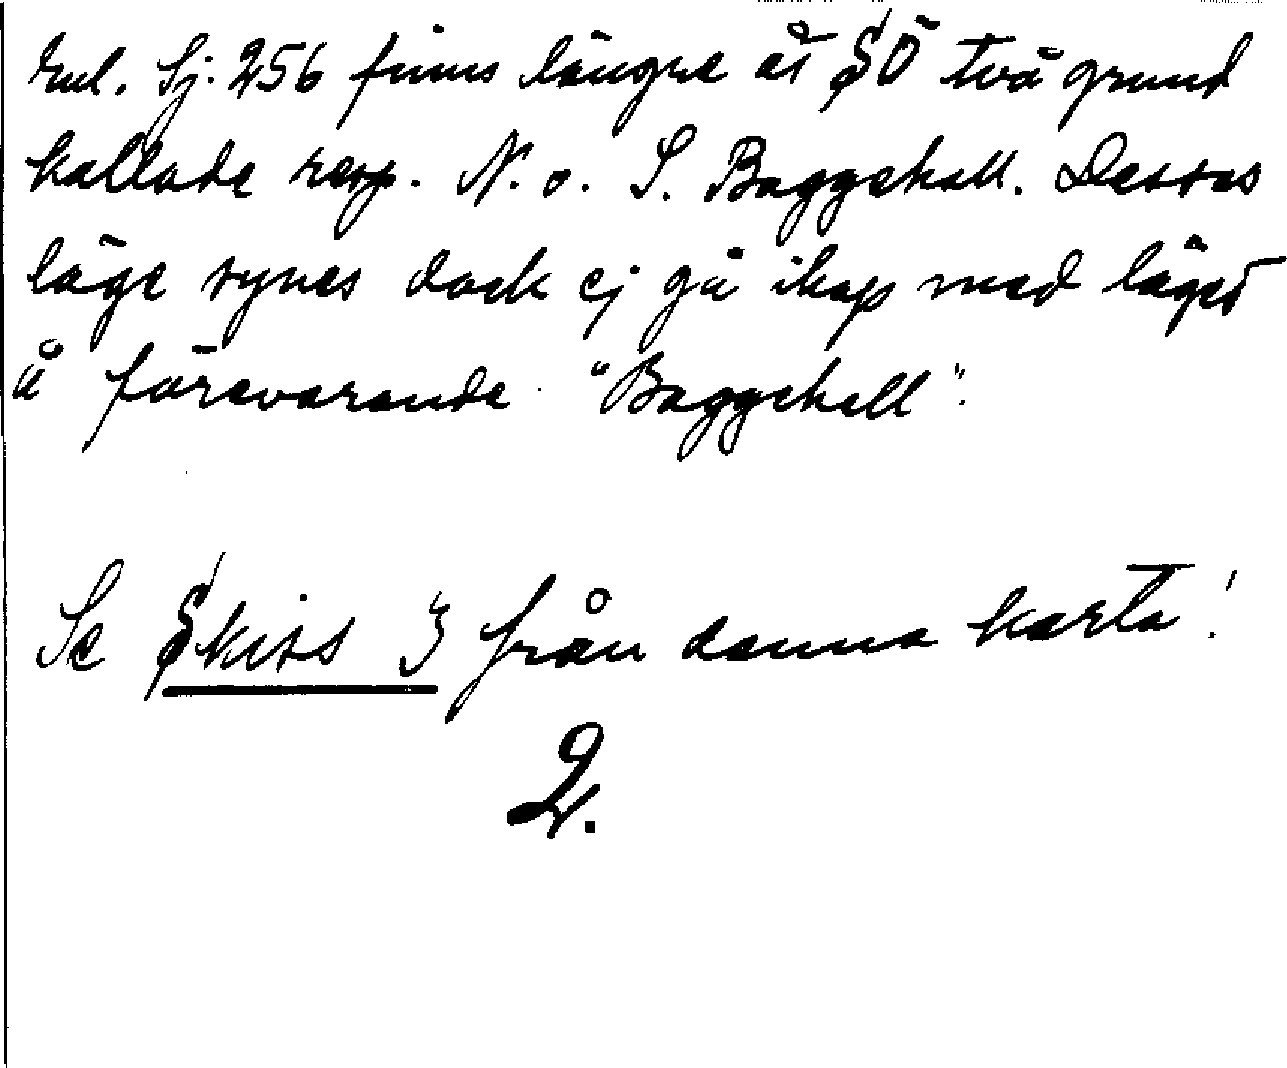 Enl. Sj. 256 finns längre åt SÖ två grund
kallade resp. N. o. S. Baggehall. Dessas
läge synes dock ej gå ihop med läget
å förevarande "Baggehall".
Se Skiss 3 från denna karta!
2.